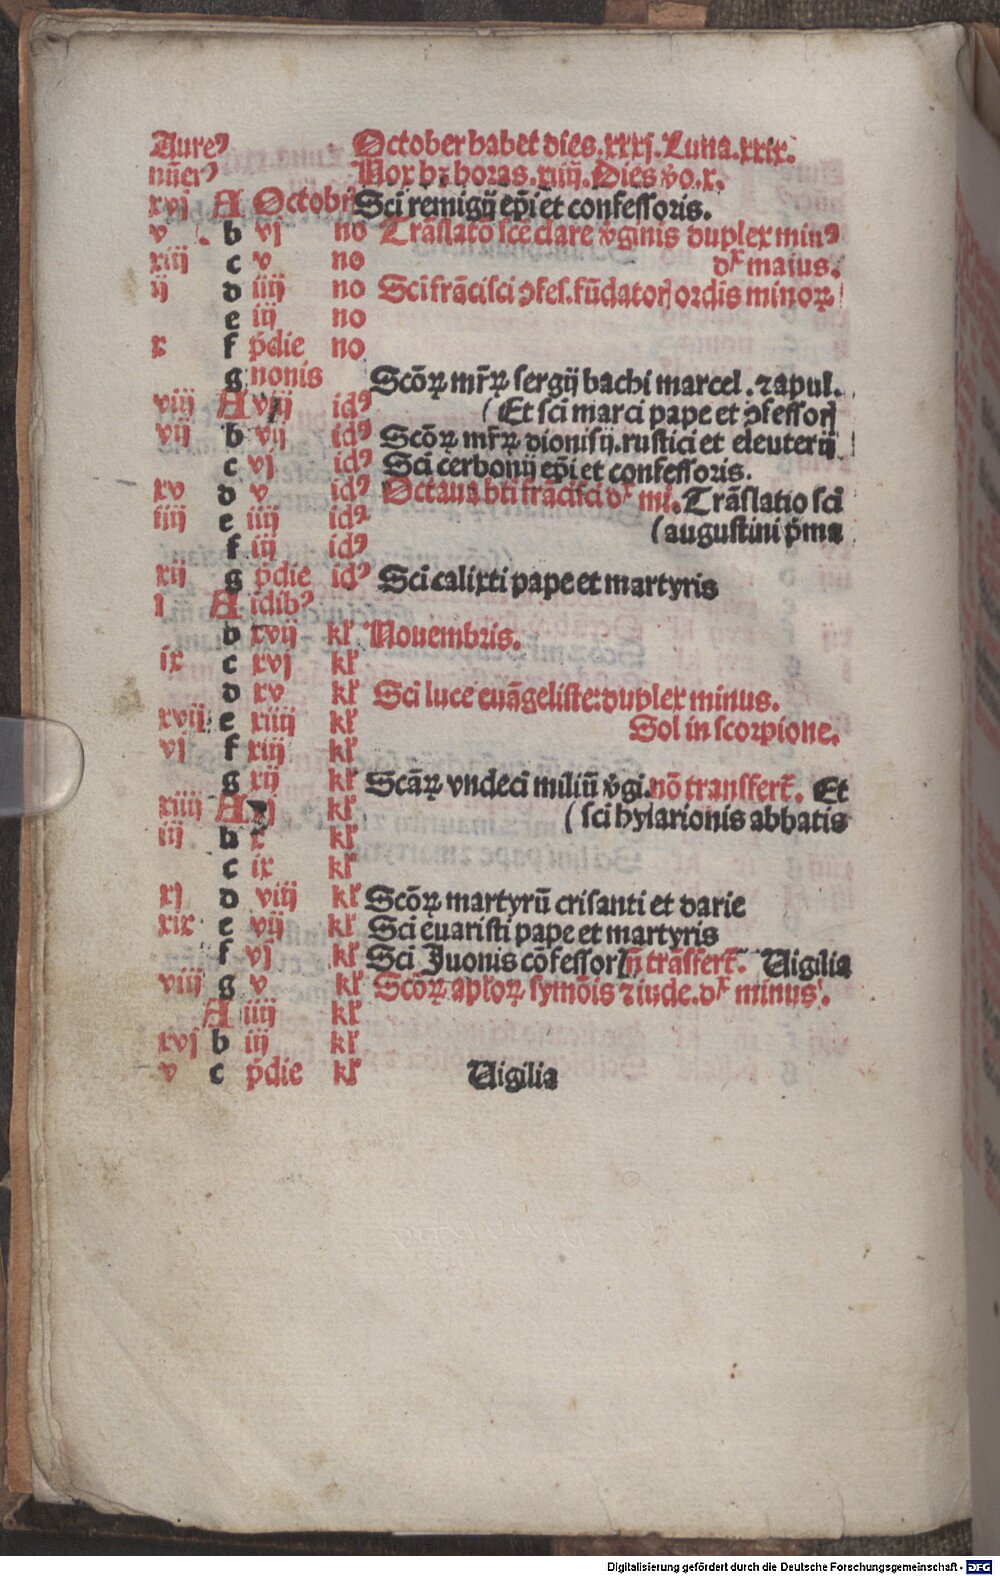 Aureꝰ October habet dies.xxxj.Luna.xxix.
nūerꝰ Nox hꝫ horas.xiiij.Dies ꝟo.x.
xvj A Octobris Sci remigij ep̄i et confessoris.
v b vj no Trāslato scē clare v̄ginis duplex minꝰ
xiij c v no dx maius.
ij d iiij no Sci frācisci ɔfes.fūdatorꝭ ordīs minoꝝ
e iij no
x f p̄die no
g nonis Scōꝝ mr̄ꝝ sergij bachi marcel.⁊apul.
viij A viij idꝰ (Et sci marci pape et ɔfessorꝭ
vij b vij idꝰ Scōꝝ mr̄ꝝ dionisij.rustici et eleuterij
c vj idꝰ Sci cerbonij ep̄i et confessoris.
xv d v idꝰ Octaua bti frācisci dx mi.Trāslatio sci
iiij e iiij idꝰ (augustini p̄ma
f iij idꝰ
xij g p̄die idꝰ Sci calixti pape et martyris
j A idibꝰ
b xvij kl̄ Nouembris.
ix c xvj kl̄
d xv kl̄ Sci luce euāgeliste:duplex minus.
xvij e xiiij kl̄ Sol in scorpione.
vj f xiij kl̄
g xij kl̄ Scāꝝ vndeci miliū v̄gi.nō transfert̄. Et
xiiij A xj kl̄ (sci hylarionis abbatis
iij b x kl̄
c ix kl̄
xj d viij kl̄ Scōꝝ martyrū crisanti et darie
xix e vij kl̄ Sci evaristi pape et martyris
f vj kl̄ Sci Juonis cōfessorꝭ n̄ trāsfert̄. Uigilia
viij g v kl̄ Scōꝝ apl̄oꝝ symōis ⁊iude.dx minus.
A iiij kl̄
xvj b iij kl̄
v c p̄die kl̄ Uigilia
Digitalisierung gefördert durch die Deutsche Forschungsgemeinschaft - DFG